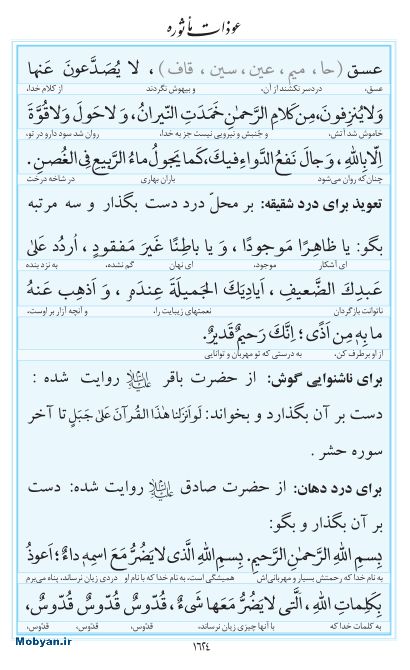 عوذات مأثوره
عسق (حا، میم، عین، سین، قاف)، لا يُصَدَّعونَ عَنها
عسق، دردسر نکشند از آن، و بیهوش نگردند از کلام خدا،
وَلا يُنزِفونَ، مِن كَلامِ الرَّحمٰنِ خَمَدَتِ النّيرانُ، وَ لا حَولَ وَلا قُوَّةَ
خاموش شد آتش، و جُنبش و نیرویی نیست جز به خدا، روان شد سود دارو در تو،
اِلّا بِاللّٰهِ، وَ جالَ نَفعُ الدَّواءِ فيكَ، كَما يَجولُ ماءُ الرَّبيعِ فِى الغُصنِ.
چنان‌که روان می‌شود باران بهاری در شاخه درخت
تعویذ برای درد شقیقه: بر محلّ درد دست بگذار و سه مرتبه
بگو: يا ظاهِرًا مَوجودًا، وَ يا باطِنًا غَيرَ مَفقودٍ، اُردُد عَلىٰ
ای آشکار موجود، ای نهان گم نشده، به نزد بنده
عَبدِكَ الضَّعيفِ، اَيادِيَكَ الجَميلَةَ عِندَهُ، وَ اَذهِب عَنهُ
ناتوانت بازگردان نعمتهای زیبایت را، و آنچه آزار بر اوست،
ما بِهِ مِن اَذًى؛ اِنَّكَ رَحيمٌ قَديرٌ.
از او برطرف کن، به درستی که تو مهربان و توانایی
برای ناشنوایی گوش: از حضرت باقر علیه السلام روایت شده :
دست بر آن بگذارد و بخواند: لَو اَنزَلنا هٰذَا القُرآنَ عَلىٰ جَبَلٍ تا آخر
سوره حشر .
برای درد دهان: از حضرت صادق علیه السلام روایت شده: دست
بر آن بگذار و بگو:
بِسمِ اللّٰهِ الرَّحمٰنِ الرَّحيمِ. بِسمِ اللّٰهِ الَّذى لا يَضُرُّ مَعَ اسمِهِ داءٌ؛ اَعوذُ
به نام خدا که رحمتش بسیار و مهربانی‌اش همیشگی است، به نام خدا که با نام او دردی زیان نرساند، پناه می‌برم
بِكَلِماتِ اللّٰهِ، الَّتى لا يَضُرُّ مَعَها شَىءٌ، قُدّوسٌ قُدّوسٌ قُدّوسٌ،
به کلمات خدا که با آنها چیزی زیان نرساند، قدّوس، قدّوس، قدّوس،
۱٦۲٤
Mobyan.ir